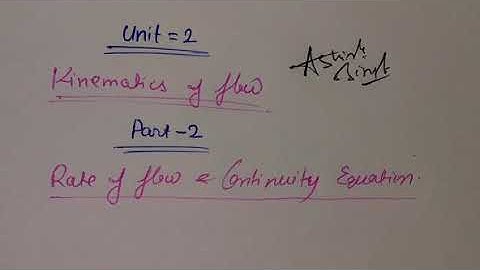 Unit = 2
Kinematics of flow
Part - 2
Rate of flow & Continuity Equation.